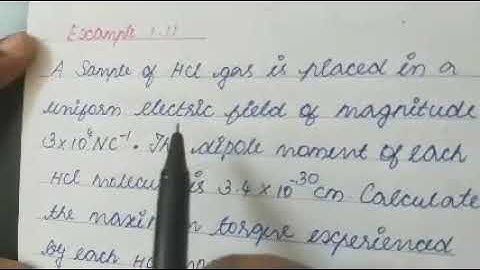 Example 1.11
A Sample of HCl gas is placed in a
uniform electric field of magnitude
3×10⁴ NC⁻¹. The dipole moment of each
HCl molecule is 3.4×10⁻³⁰ cm Calculate
the maximum torque experienced
by each HCl